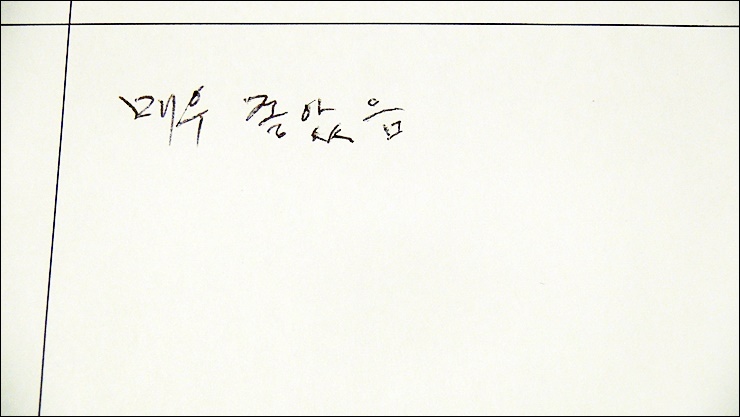 매우 좋았음